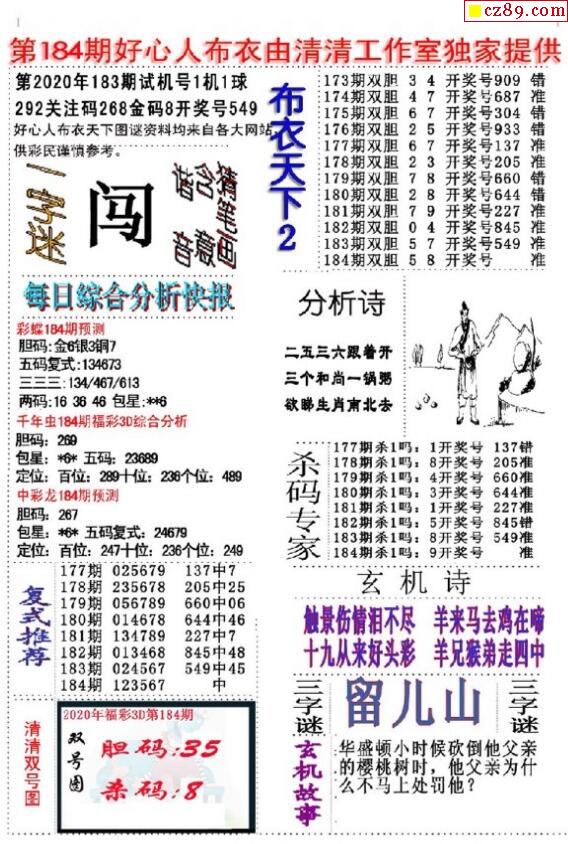 cz89.com
第184期好心人布衣由清清工作室独家提供
第2020年183期试机号1机1球
292关注码268金码8开奖号549
好心人布衣天下图谜资料均来自各大网站,
供彩民谨慎参考。
一字迷
闯
猜笔画
含意
谐音
每日综合分析快报
彩蝶184期预测
胆码:金6银3铜7
五码复式:134673
三三三:134/467/613
两码:16 36 46 包星:**6
千年虫184期福彩3D综合分析
胆码: 269
包星: *6* 五码: 23689
定位: 百位: 289十位: 236个位: 489
中彩龙184期预测
胆码: 267
包星: *6* 五码复式: 24679
定位: 百位: 247十位: 236个位: 249
复式推荐
177期 025679 137中7
178期 235678 205中25
179期 056789 660中06
180期 014678 644中46
181期 134789 227中7
182期 013468 845中48
183期 024567 549中45
184期 123567 中
清清双号图
2020年福彩3D第184期
双号图
胆码:35
杀码:8
布衣天下2
173期双胆 3 4 开奖号909 错
174期双胆 4 7 开奖号687 准
175期双胆 6 7 开奖号304 错
176期双胆 2 5 开奖号933 错
177期双胆 6 7 开奖号137 准
178期双胆 2 3 开奖号205 准
179期双胆 7 8 开奖号660 错
180期双胆 2 8 开奖号644 错
181期双胆 7 9 开奖号227 准
182期双胆 0 4 开奖号845 准
183期双胆 5 7 开奖号549 准
184期双胆 5 8 开奖号 准
分析诗
二五三六跟着开
三个和尚一锅粥
欲睇生肖南北去
杀码专家
177期杀1吗: 1开奖号 137错
178期杀1吗: 8开奖号 205准
179期杀1吗: 4开奖号 660准
180期杀1吗: 3开奖号 644准
181期杀1吗: 1开奖号 227准
182期杀1吗: 5开奖号 845错
183期杀1吗: 8开奖号 549准
184期杀1吗: 9开奖号 准
玄机诗
触景伤情泪不尽 羊来马去鸡在啼
十九从来好头彩 羊兄猴弟走四中
三字谜
留儿山
三字谜
玄机故事
华盛顿小时候砍倒他父亲
的樱桃树时，他父亲为什
么不马上处罚他?